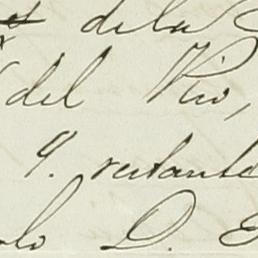 de la
del Rio,
9. restante
D.